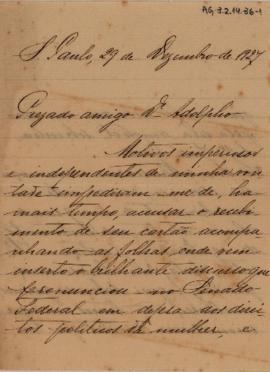 AG.3.2.14.36-1
S. Paulo, 29 de Dezembro de 1927
Prezado amigo Dr. Adolpho
Motivos imperiosos
e independentes de minha von
tate impediram-me de, ha
mais tempo, accusar o recebi
mento de seu cartão acompa
nhando as folhas onde vem
inserto o brilhante discurso que
pronunciou no Senado
Federal em defesa dos direi
tos politicos da mulher, e